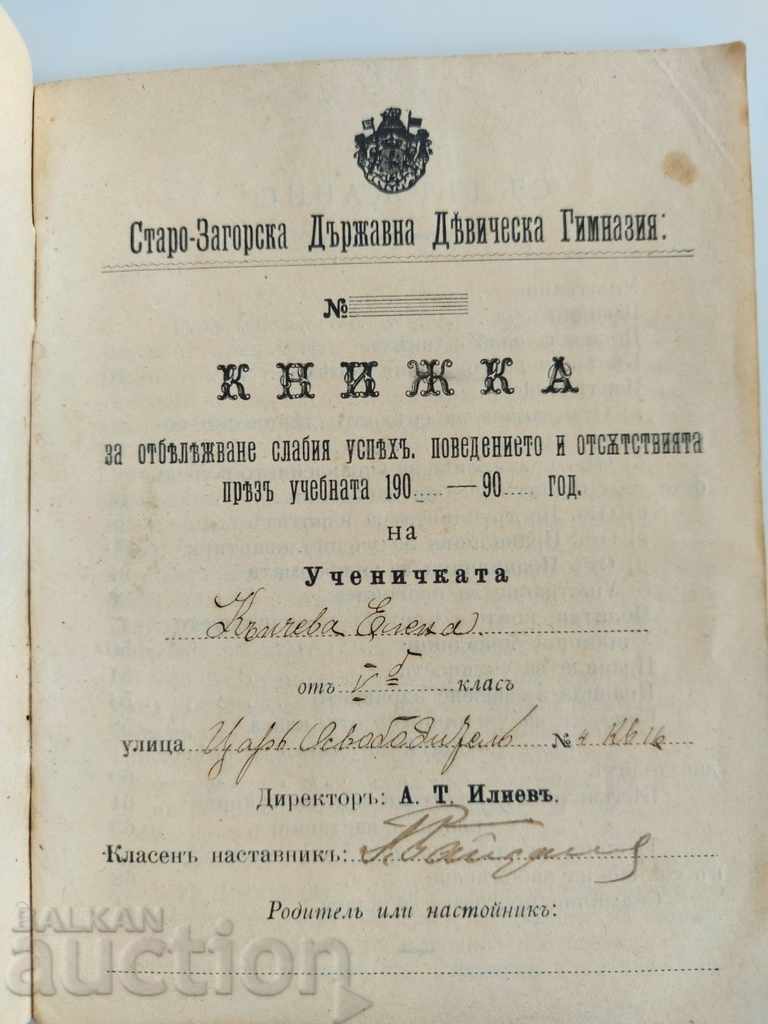 Старо-Загорска Държавна Дѣвическа Гимназия:
№
КНИЖКА
за отбѣлѣжване слабия успѣхъ. поведението и отсѫтствията
прѣзъ учебната 190.... — 90.... год.
на
Ученичката
Кънчева Елена
отъ V б класъ
улица Царь Освободитель № 4
Директоръ: А. Т. Илиевъ.
Класенъ наставникъ:
Родитель или настойникъ:
БАLKAN
auction